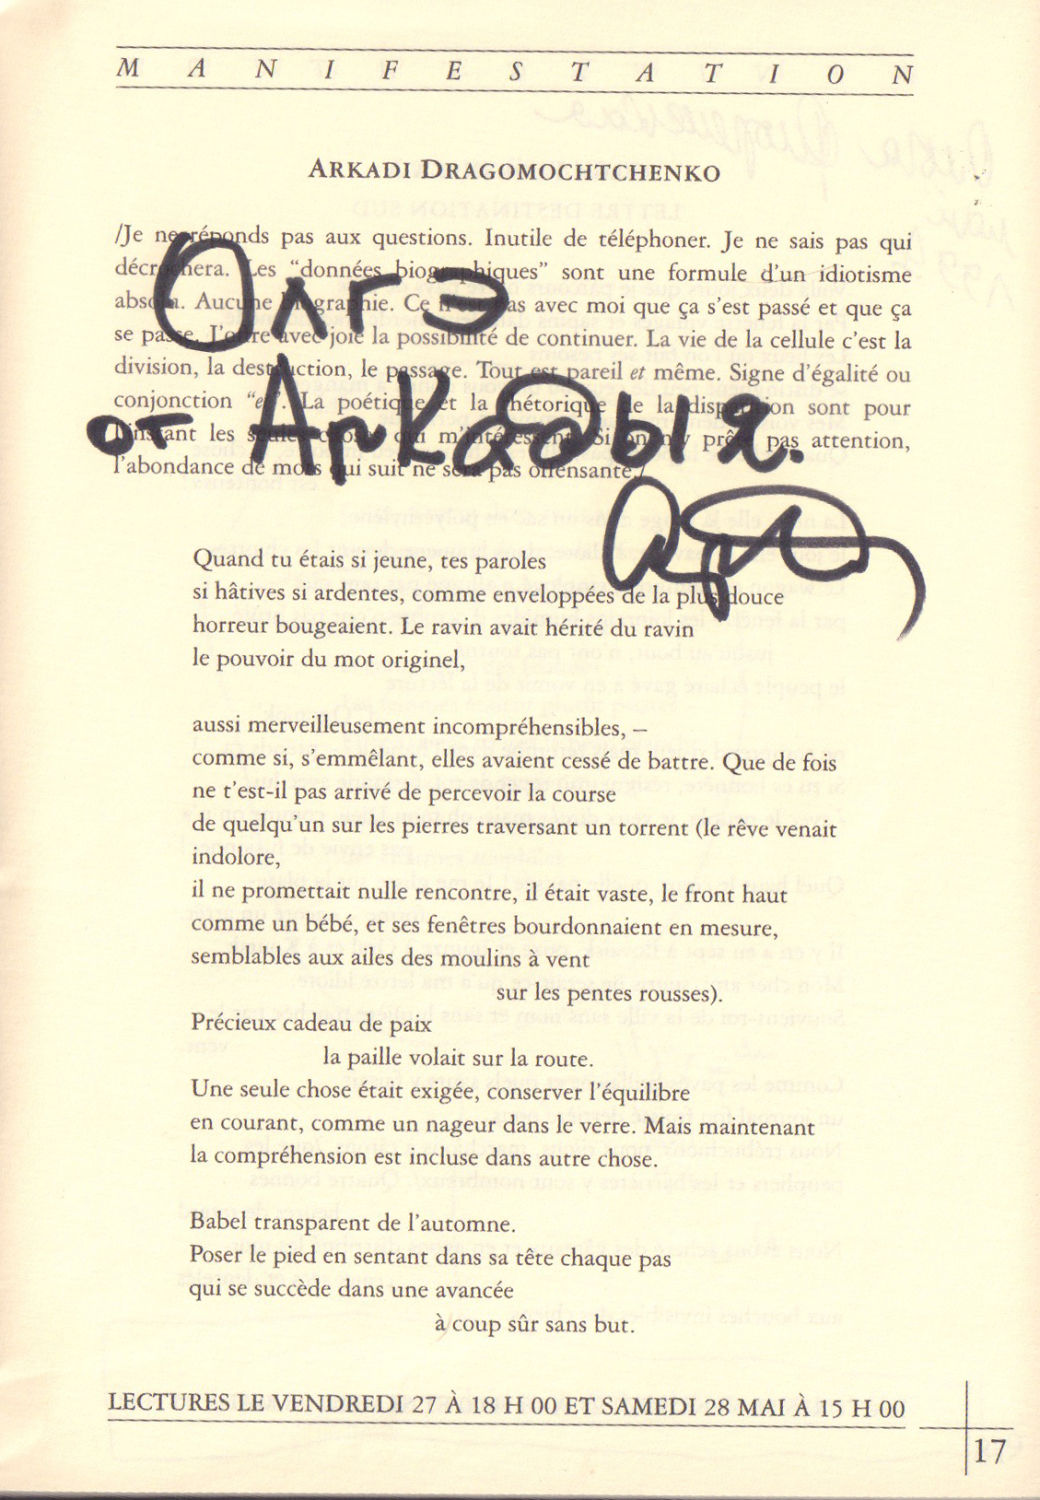 MANIFESTATION
ARKADI DRAGOMOCHTCHENKO
/Je ne réponds pas aux questions. Inutile de téléphoner. Je ne sais pas qui
décrochera. Les “données biographiques” sont une formule d’un idiotisme
absolu. Aucune biographie. Ce n’est pas avec moi que ça s’est passé et que ça
se passe. J’offre avec joie la possibilité de continuer. La vie de la cellule c’est la
division, la destruction, le passage. Tout est pareil et même. Signe d’égalité ou
conjonction “et”. La poétique et la rhétorique de la disparition sont pour
l’instant les seules choses qui m’intéressent. Si on n’y prête pas attention,
l’abondance de mots qui suit ne sera pas offensante./
Олгэ
от Аркадыя.
Quand tu étais si jeune, tes paroles
si hâtives si ardentes, comme enveloppées de la plus douce
horreur bougeaient. Le ravin avait hérité du ravin
le pouvoir du mot originel,
aussi merveilleusement incompréhensibles, –
comme si, s’emmêlant, elles avaient cessé de battre. Que de fois
ne t’est-il pas arrivé de percevoir la course
de quelqu’un sur les pierres traversant un torrent (le rêve venait
indolore,
il ne promettait nulle rencontre, il était vaste, le front haut
comme un bébé, et ses fenêtres bourdonnaient en mesure,
semblables aux ailes des moulins à vent
sur les pentes rousses).
Précieux cadeau de paix
la paille volait sur la route.
Une seule chose était exigée, conserver l’équilibre
en courant, comme un nageur dans le verre. Mais maintenant
la compréhension est incluse dans autre chose.
Babel transparent de l’automne.
Poser le pied en sentant dans sa tête chaque pas
qui se succède dans une avancée
à coup sûr sans but.
LECTURES LE VENDREDI 27 À 18 H 00 ET SAMEDI 28 MAI À 15 H 00
17